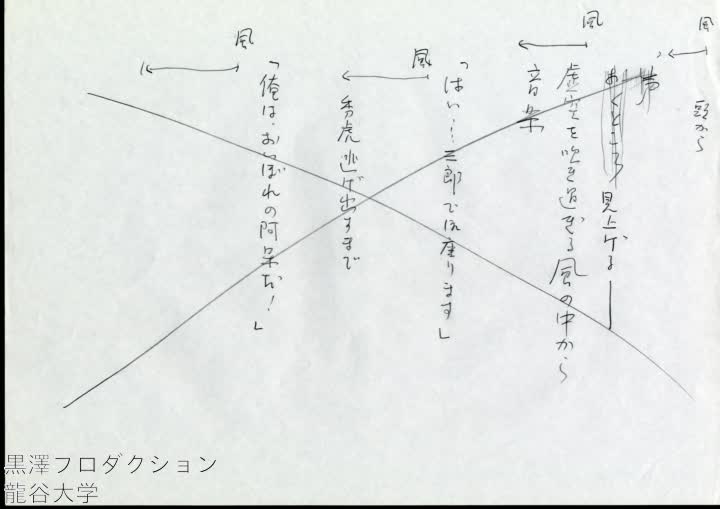 風
頭から
声
あくところ 見上げる
風
虚空を吹き過ぎる風の中から
音楽
風
「はい…三郎では座ります」
秀虎逃げ出すまで
風
「俺は、おいぼれの阿呆だ！」
黒澤フロダクション
龍谷大学